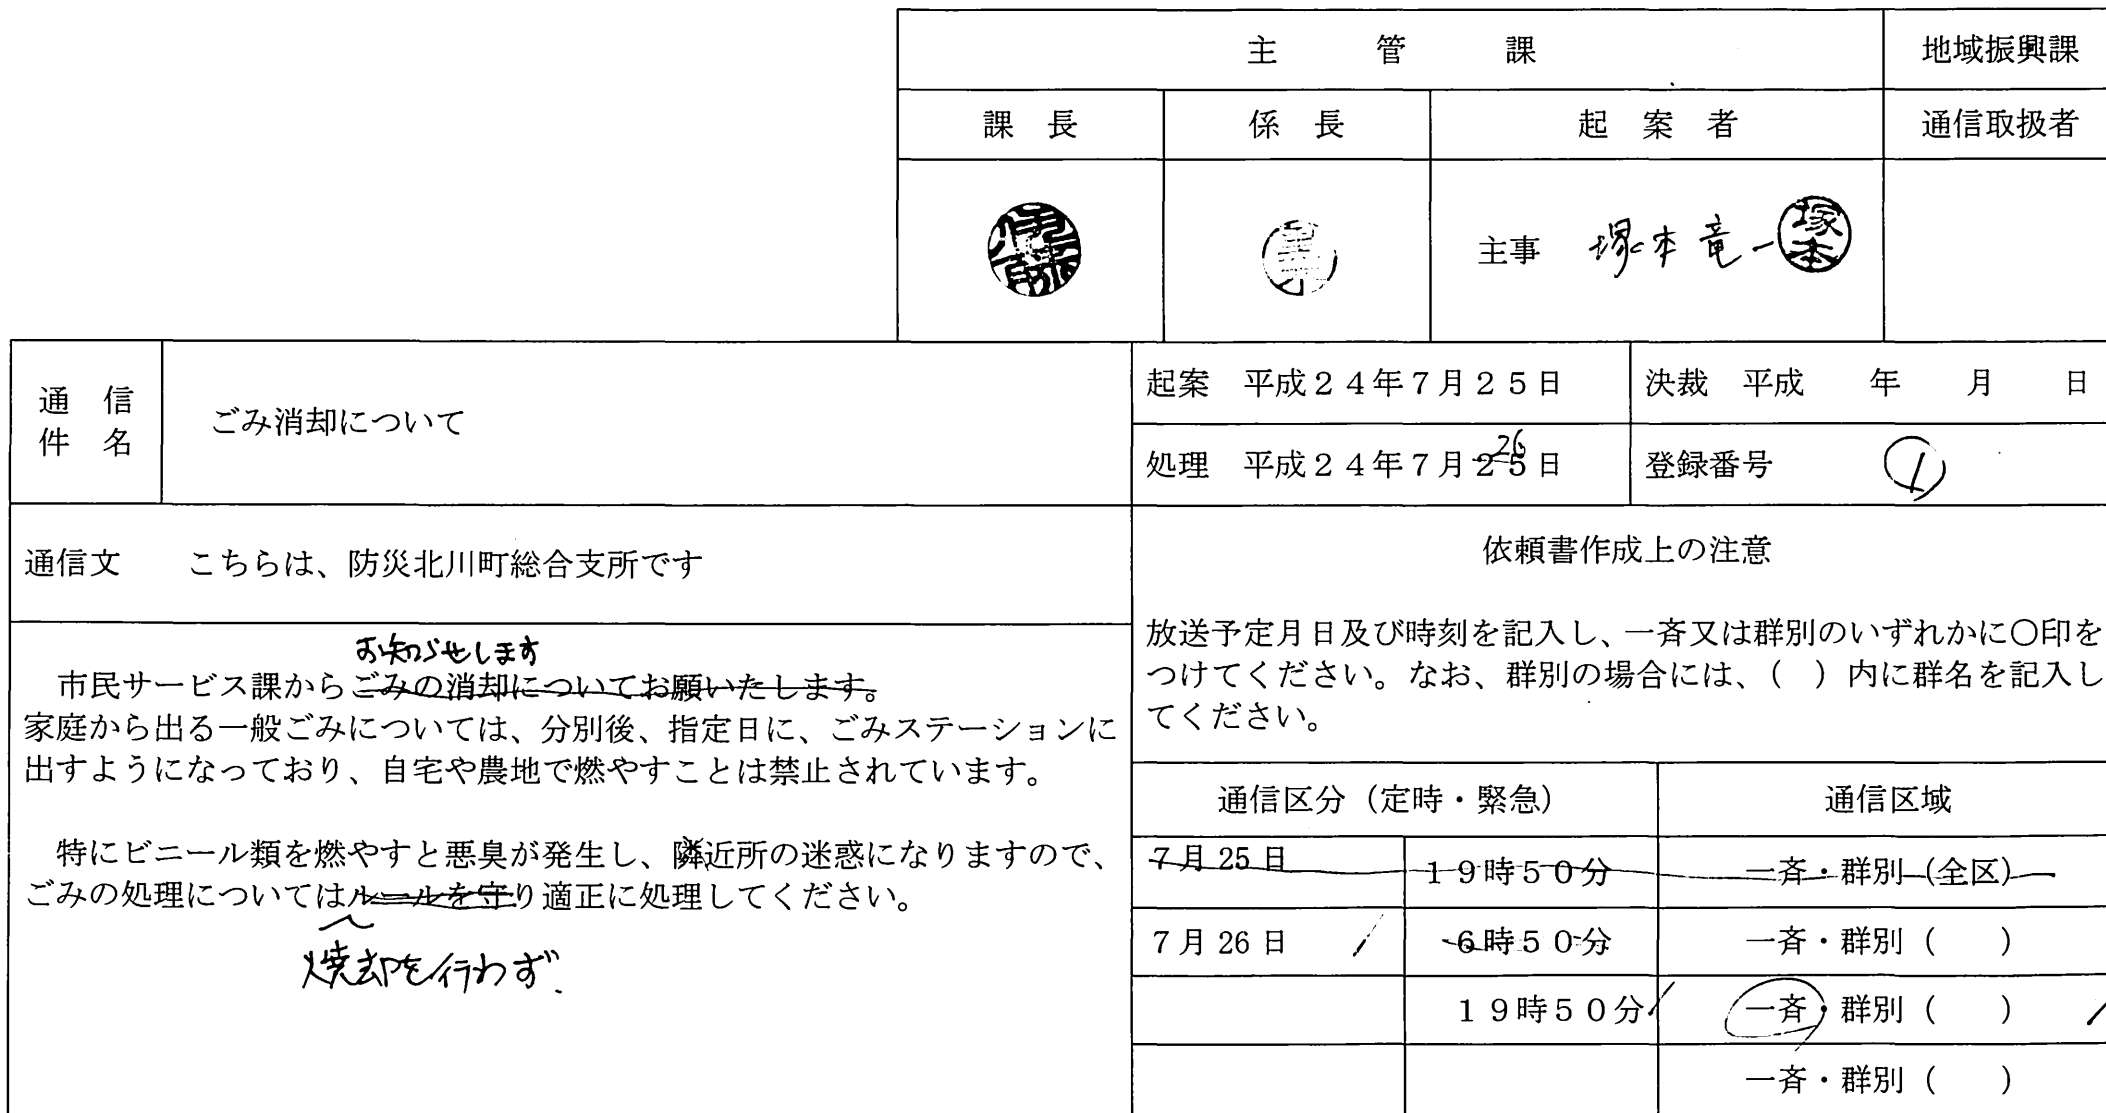 主管課 地域振興課
課長 係長 起案者 通信取扱者
主事 塚本竜一 塚本
通信件名 ごみ消却について
起案 平成24年7月25日 決裁 平成 年 月 日
処理 平成24年7月25日 26 登録番号 1
通信文 こちらは、防災北川町総合支所です
お知らせします
市民サービス課からごみの消却についてお願いたします。
家庭から出る一般ごみについては、分別後、指定日に、ごみステーションに
出すようになっており、自宅や農地で燃やすことは禁止されています。
特にビニール類を燃やすと悪臭が発生し、隣近所の迷惑になりますので、
ごみの処理についてはルールを守り適正に処理してください。
焼却を行わず
依頼書作成上の注意
放送予定月日及び時刻を記入し、一斉又は群別のいずれかに〇印を
つけてください。なお、群別の場合には、( )内に群名を記入し
てください。
通信区分(定時・緊急) 通信区域
7月25日 19時50分 一斉・群別(全区)
7月26日 6時50分 一斉・群別( )
19時50分 一斉・群別( )
一斉・群別( )